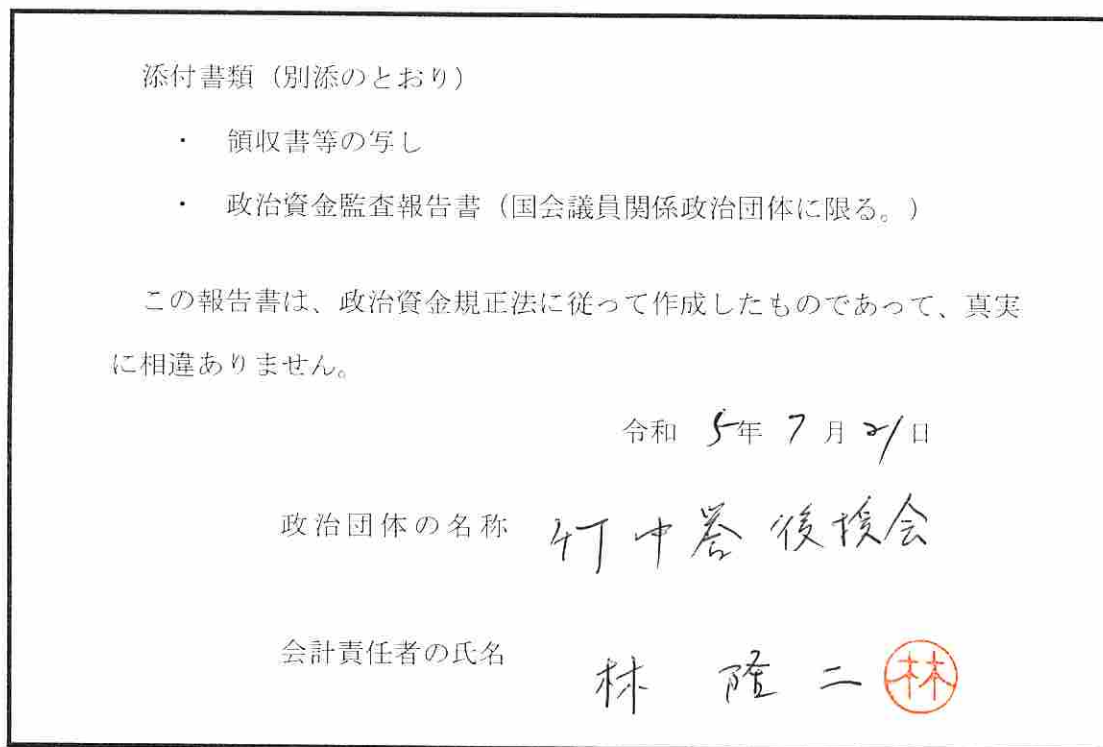 添付書類（別添のとおり）
・　領収書等の写し
・　政治資金監査報告書（国会議員関係政治団体に限る。）
この報告書は、政治資金規正法に従って作成したものであって、真実
に相違ありません。
令和 5年 7月 21日
政治団体の名称 竹中誉後援会
会計責任者の氏名 林 隆二 林